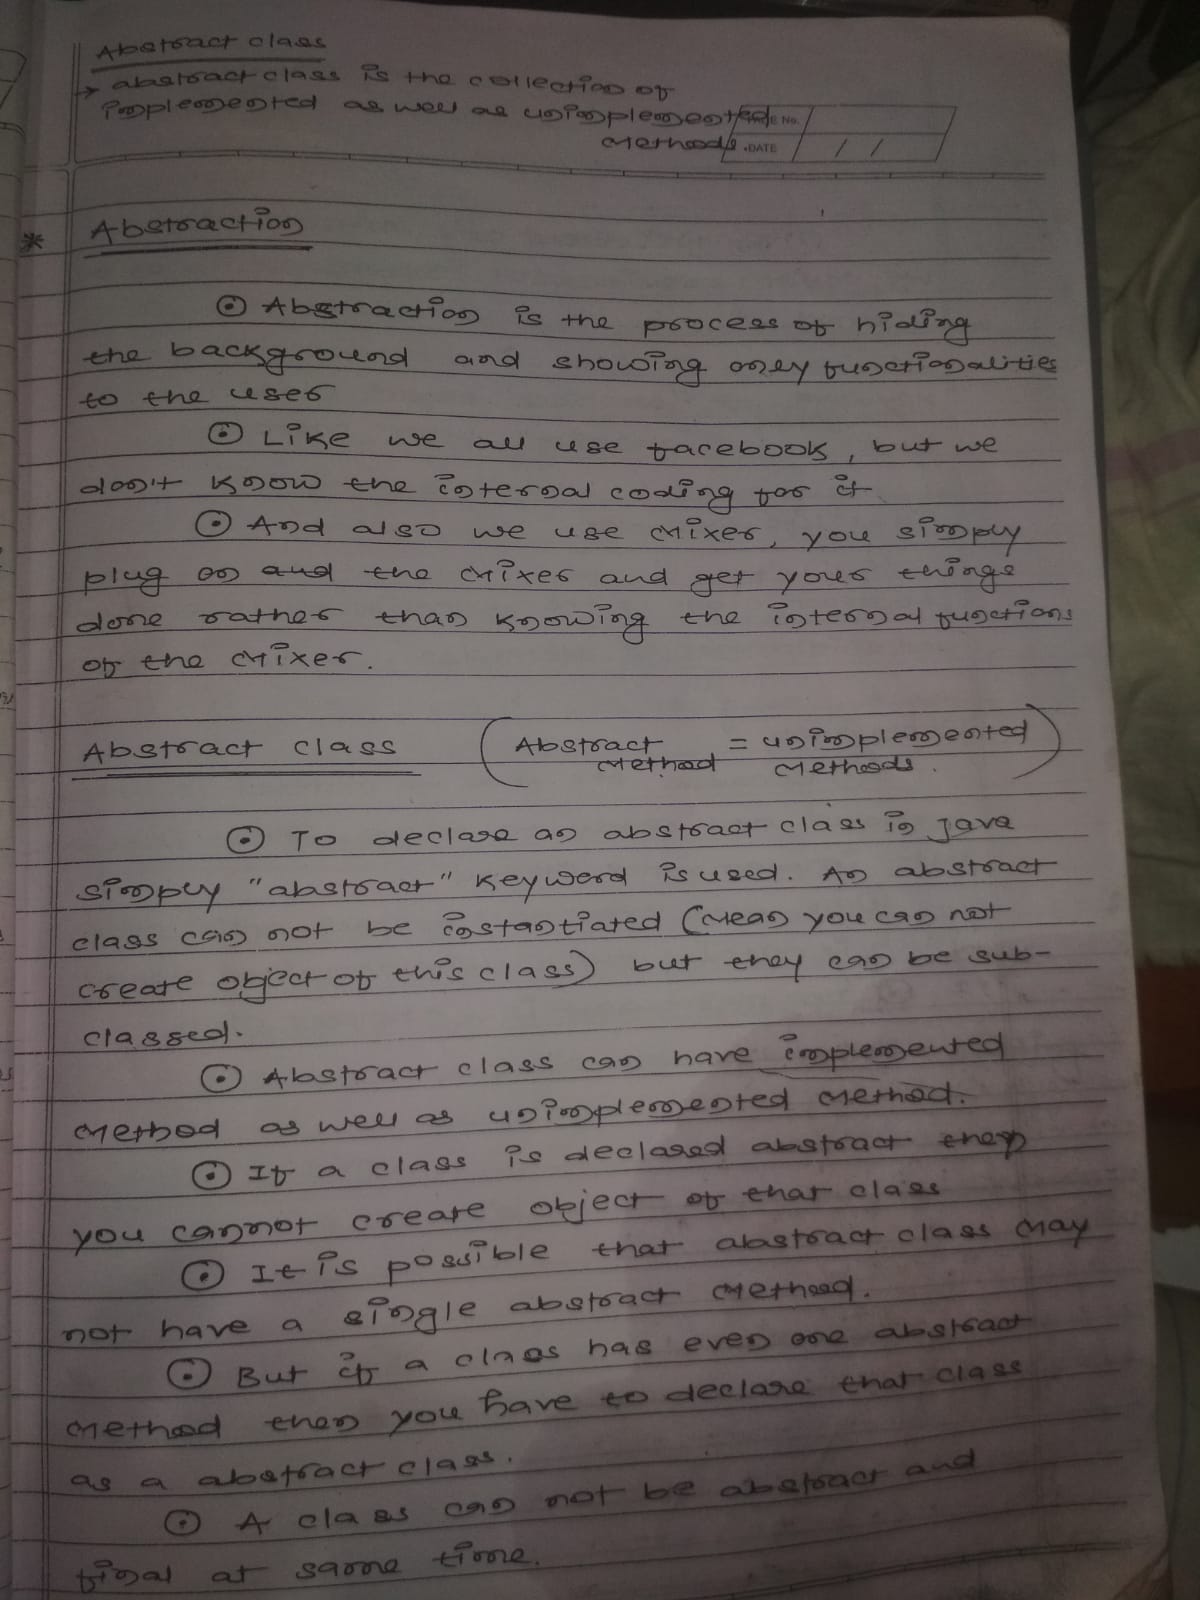 Abstract class
→ abstract class is the collection of
implemented as well as unimplemented
Methods
PAGE No.
DATE / /
* Abstraction
⊙ Abstraction is the process of hiding
the background and showing only functionalities
to the user
⊙ Like we all use facebook, but we
don't know the internal coding for it
⊙ And also we use Mixer, you simply
plug on and the Mixer and get your things
done rather than knowing the internal functions
of the Mixer.
Abstract class (Abstract Method = unimplemented Methods.)
⊙ To declare an abstract class in Java
simply "abstract" keyword is used. An abstract
class can not be instantiated (Mean you can not
create object of this class) but they can be sub-
classed.
⊙ Abstract class can have implemented
Method as well as unimplemented Method.
⊙ If a class is declared abstract then
you cannot create object of that class
⊙ It is possible that abstract class may
not have a single abstract Method.
⊙ But if a class has even one abstract
Method then you have to declare that class
as a abstract class.
⊙ A class can not be abstract and
final at same time.